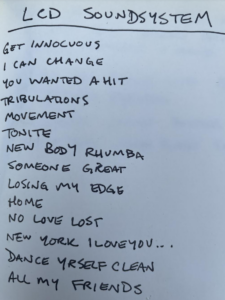 LCD SOUNDSYSTEM
GET INNOCUOUS
I CAN CHANGE
YOU WANTED A HIT
TRIBULATIONS
MOVEMENT
TONITE
NEW BODY RHUMBA
SOMEONE GREAT
LOSING MY EDGE
HOME
NO LOVE LOST
NEW YORK I LOVE YOU...
DANCE YRSELF CLEAN
ALL MY FRIENDS